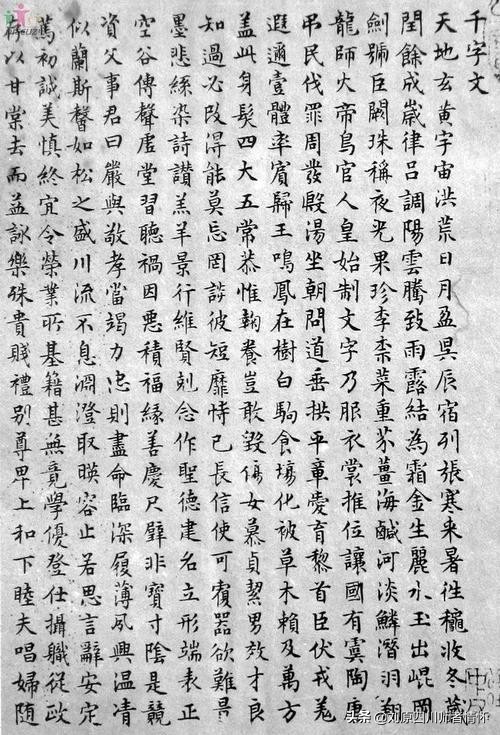 千字文
天地玄黃宇宙洪荒日月盈昃辰宿列張寒来暑往穐收冬藏
閏餘成歲律呂調陽雲騰致雨露結為霜金生麗水玉出崐岡
劍號巨闕珠稱夜光果珍李柰菜重芥薑海鹹河淡鱗潛羽翔
龍師火帝鳥官人皇始制文字乃服衣裳推位讓國有虞陶唐
弔民伐罪周發殷湯坐朝問道垂拱平章愛育黎首臣伏戎羌
遐邇壹體率賓歸王鳴鳳在樹白駒食場化被草木賴及萬方
蓋此身髮四大五常恭惟鞠養豈敢毀傷女慕貞絜男效才良
知過必改得能莫忘罔談彼短靡恃己長信使可覆器欲難量
墨悲絲染詩讃羔羊景行維賢剋念作聖德建名立形端表正
空谷傳聲虛堂習聽禍因惡積福緣善慶尺璧非寶寸陰是競
資父事君曰嚴與敬孝當竭力忠則盡命臨深履薄夙興溫凊
似蘭斯馨如松之盛川流不息淵澄取暎容止若思言辭安定
篤初誠美慎終宜令榮業所基籍甚無竟學優登仕攝職從政
存以甘棠去而益詠樂殊貴賤禮別尊卑上和下睦夫唱婦隨
头条 @刘原四川师者情怀